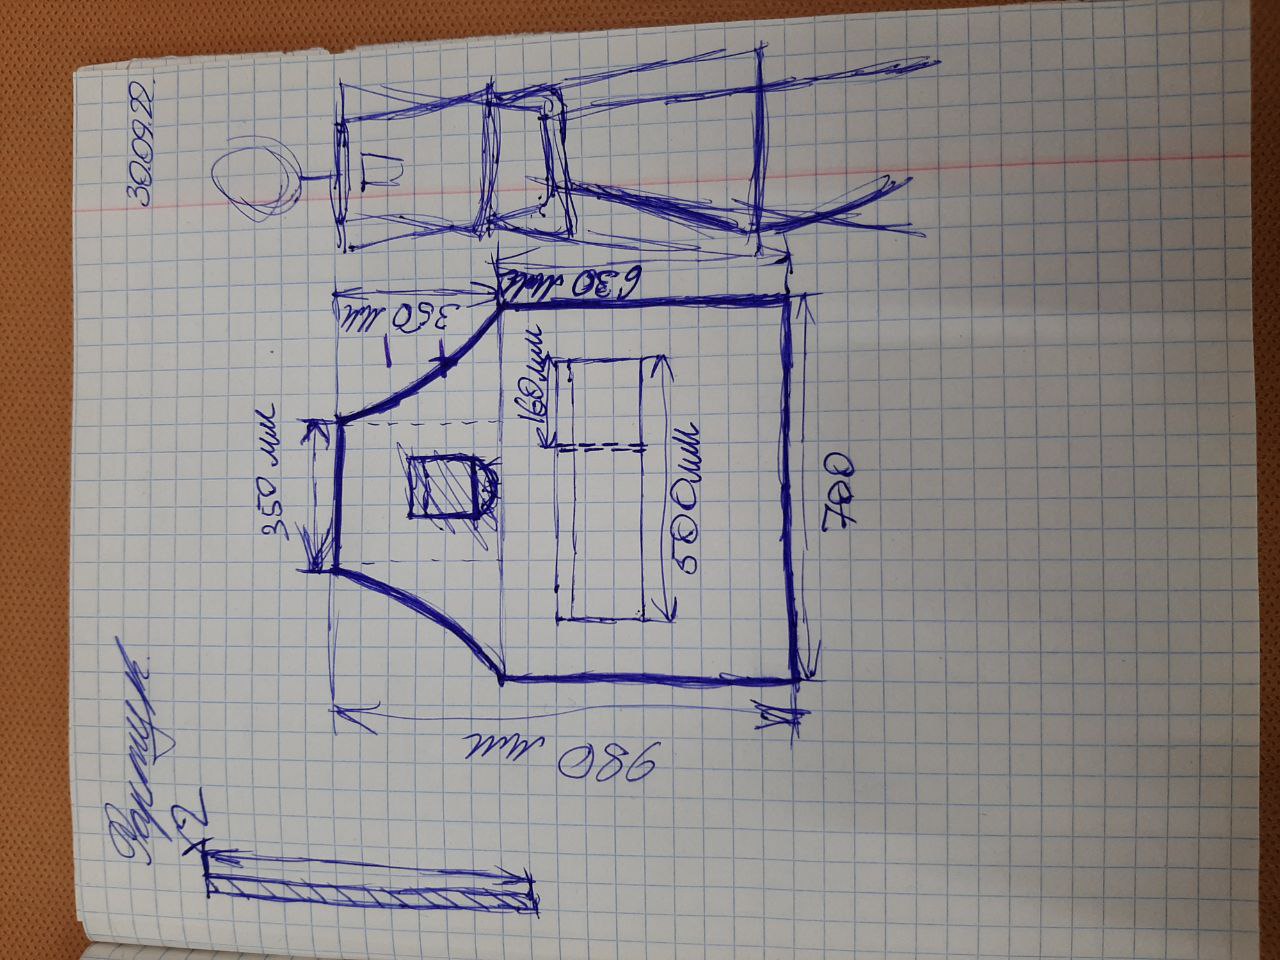 Фартук.
30.09.22.
x2
350 мм
350 мм
980 мм
160мм
630 мм
500мм
700